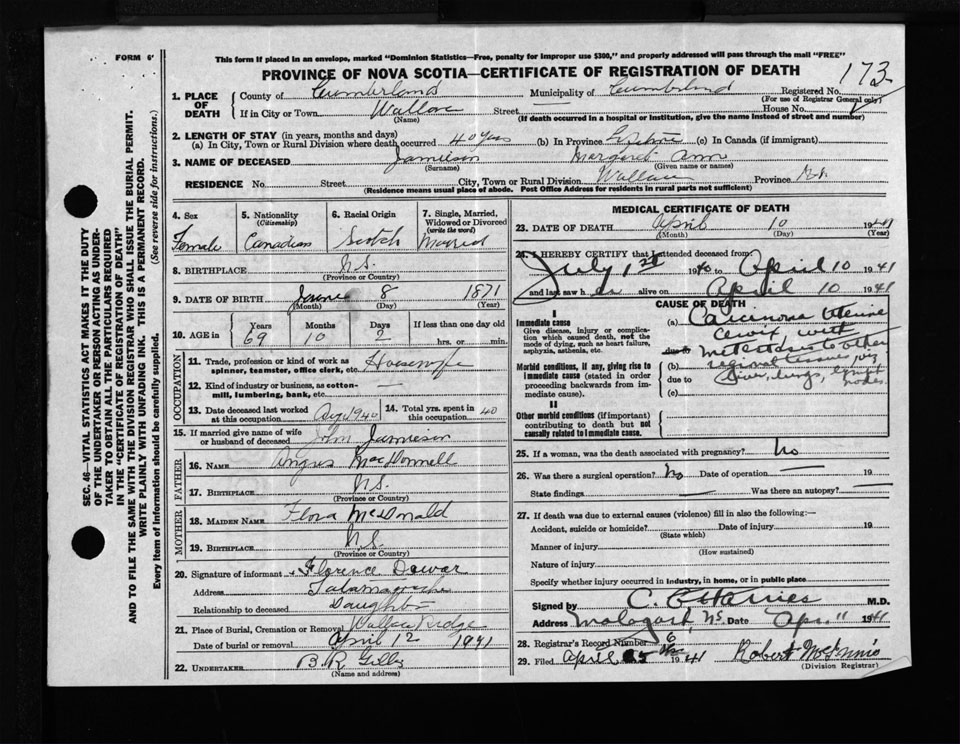 FORM 6
This form if placed in an envelope, marked "Dominion Statistics—Free, penalty for improper use $300," and properly addressed will pass through the mail "FREE"
PROVINCE OF NOVA SCOTIA—CERTIFICATE OF REGISTRATION OF DEATH
173
1. PLACE OF DEATH
County of Cumberland Municipality of Cumberland Registered No.
(For use of Registrar General only)
If in City or Town Wallace Street House No.
(Name) (If death occurred in a hospital or institution, give the name instead of street and number)
2. LENGTH OF STAY (in years, months and days)
(a) In City, Town or Rural Division where death occurred 40 yrs (b) In Province Lifetime (c) In Canada (if immigrant)
3. NAME OF DECEASED Jamieson Margaret Ann
(Surname) (Given name or names)
RESIDENCE No. Street City, Town or Rural Division Wallace Province N.S.
(Residence means usual place of abode. Post Office Address for residents in rural parts not sufficient)
4. Sex Female
5. Nationality (Citizenship) Canadian
6. Racial Origin Scotch
7. Single, Married, Widowed or Divorced (write the word) Married
8. BIRTHPLACE N.S.
(Province or Country)
9. DATE OF BIRTH June 8 1871
(Month) (Day) (Year)
10. AGE in Years 69 Months 10 Days 2 If less than one day old hrs. or min.
OCCUPATION
11. Trade, profession or kind of work as spinner, teamster, office clerk, etc. Housewife
12. Kind of industry or business, as cotton-mill, lumbering, bank, etc. —
13. Date deceased last worked at this occupation 1940
14. Total yrs. spent in this occupation 40
15. If married give name of wife or husband of deceased John Jamieson
FATHER
16. NAME Angus MacDonnell
17. BIRTHPLACE N.S.
(Province or Country)
MOTHER
18. MAIDEN NAME Flora McDonald
19. BIRTHPLACE N.S.
(Province or Country)
20. Signature of informant Florence Dewar
Address Tatamagouche
Relationship to deceased Daughter
21. Place of Burial, Cremation or Removal Wallace Ridge
Date of burial or removal April 12 1941
22. UNDERTAKER B R
(Name and address)
MEDICAL CERTIFICATE OF DEATH
23. DATE OF DEATH April 10 1941
(Month) (Day) (Year)
24. I HEREBY CERTIFY that I attended deceased from:
July 1st 1940 to April 10 1941
and last saw her alive on April 10 1941
CAUSE OF DEATH
I
Immediate cause
Give disease, injury or complication which caused death, not the mode of dying, such as heart failure, asphyxia, asthenia, etc.
Morbid conditions, if any, giving rise to immediate cause (stated in order proceeding backwards from immediate cause).
II
Other morbid conditions (if important) contributing to death but not causally related to immediate cause.
(a) Carcinoma Uterine
Cervix with
due to metastasis to other
(b) regional tissues, viz
due to liver, lungs, lymph
(c) nodes.
25. If a woman, was the death associated with pregnancy? No
26. Was there a surgical operation? No Date of operation — 19
State findings — Was there an autopsy? —
27. If death was due to external causes (violence) fill in also the following:—
Accident, suicide or homicide? Date of injury 19
(State which)
Manner of injury
(How sustained)
Nature of injury
Specify whether injury occurred in industry, in home, or in public place
Signed by C. E. Harries M.D.
Address Malagash, N.S. Date Apr. 11 1941
28. Registrar's Record Number 6
29. Filed April 1941 Robert
(Division Registrar)
SEC. 46—VITAL STATISTICS ACT MAKES IT THE DUTY
OF THE UNDERTAKER OR PERSON ACTING AS UNDER-
TAKER TO OBTAIN ALL THE PARTICULARS REQUIRED
IN THE "CERTIFICATE OF REGISTRATION OF DEATH"
AND TO FILE THE SAME WITH THE DIVISION REGISTRAR WHO SHALL ISSUE THE BURIAL PERMIT.
WRITE PLAINLY WITH UNFADING INK. THIS IS A PERMANENT RECORD.
Every item of information should be carefully supplied. (See reverse side for instructions.)